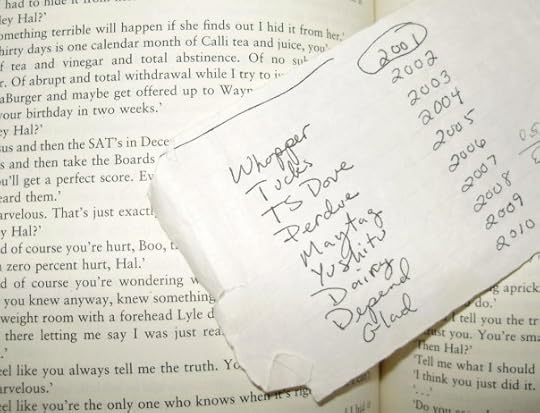 had to hide it from
ey Hal?'
omething terrible will happen if she finds out I hid it from her.'
hirty days is one calendar month of Calli tea and juice, you'
f tea and vinegar and total abstinence. Of no su
r. Of abrupt and total withdrawal while I try to
aBurger and maybe get offered up to Wayn
your birthday in two weeks.'
ey Hal?'
sus and then the SAT's in Dece
s and then take the Boards
u'll get a perfect score. Eve
eard them.'
arvelous. That's just exactly
y Hal?'
d of course you're hurt, Boo, t
zero percent hurt, Hal.'
d of course you're wondering w
you knew anyway, knew something
weight room with a forehead Lyle d
there letting me say I was just rea
.'
eel like you always tell me the truth. Yo
arvelous.'
eel like you're the only one who knows when it's righ
Whopper
Tucks
TS Dove
Perdue
Maytag
Yushitu
Dairy
Depend
Glad
2001
2002
2003
2004
2005
2006
2007
2008
2009
2010
g aprick
do.'
I tell you the tr
ust you. You're sma
'Then Hal?'
'Tell me what I should
'I think you just did it.
'. . .'
'Do you